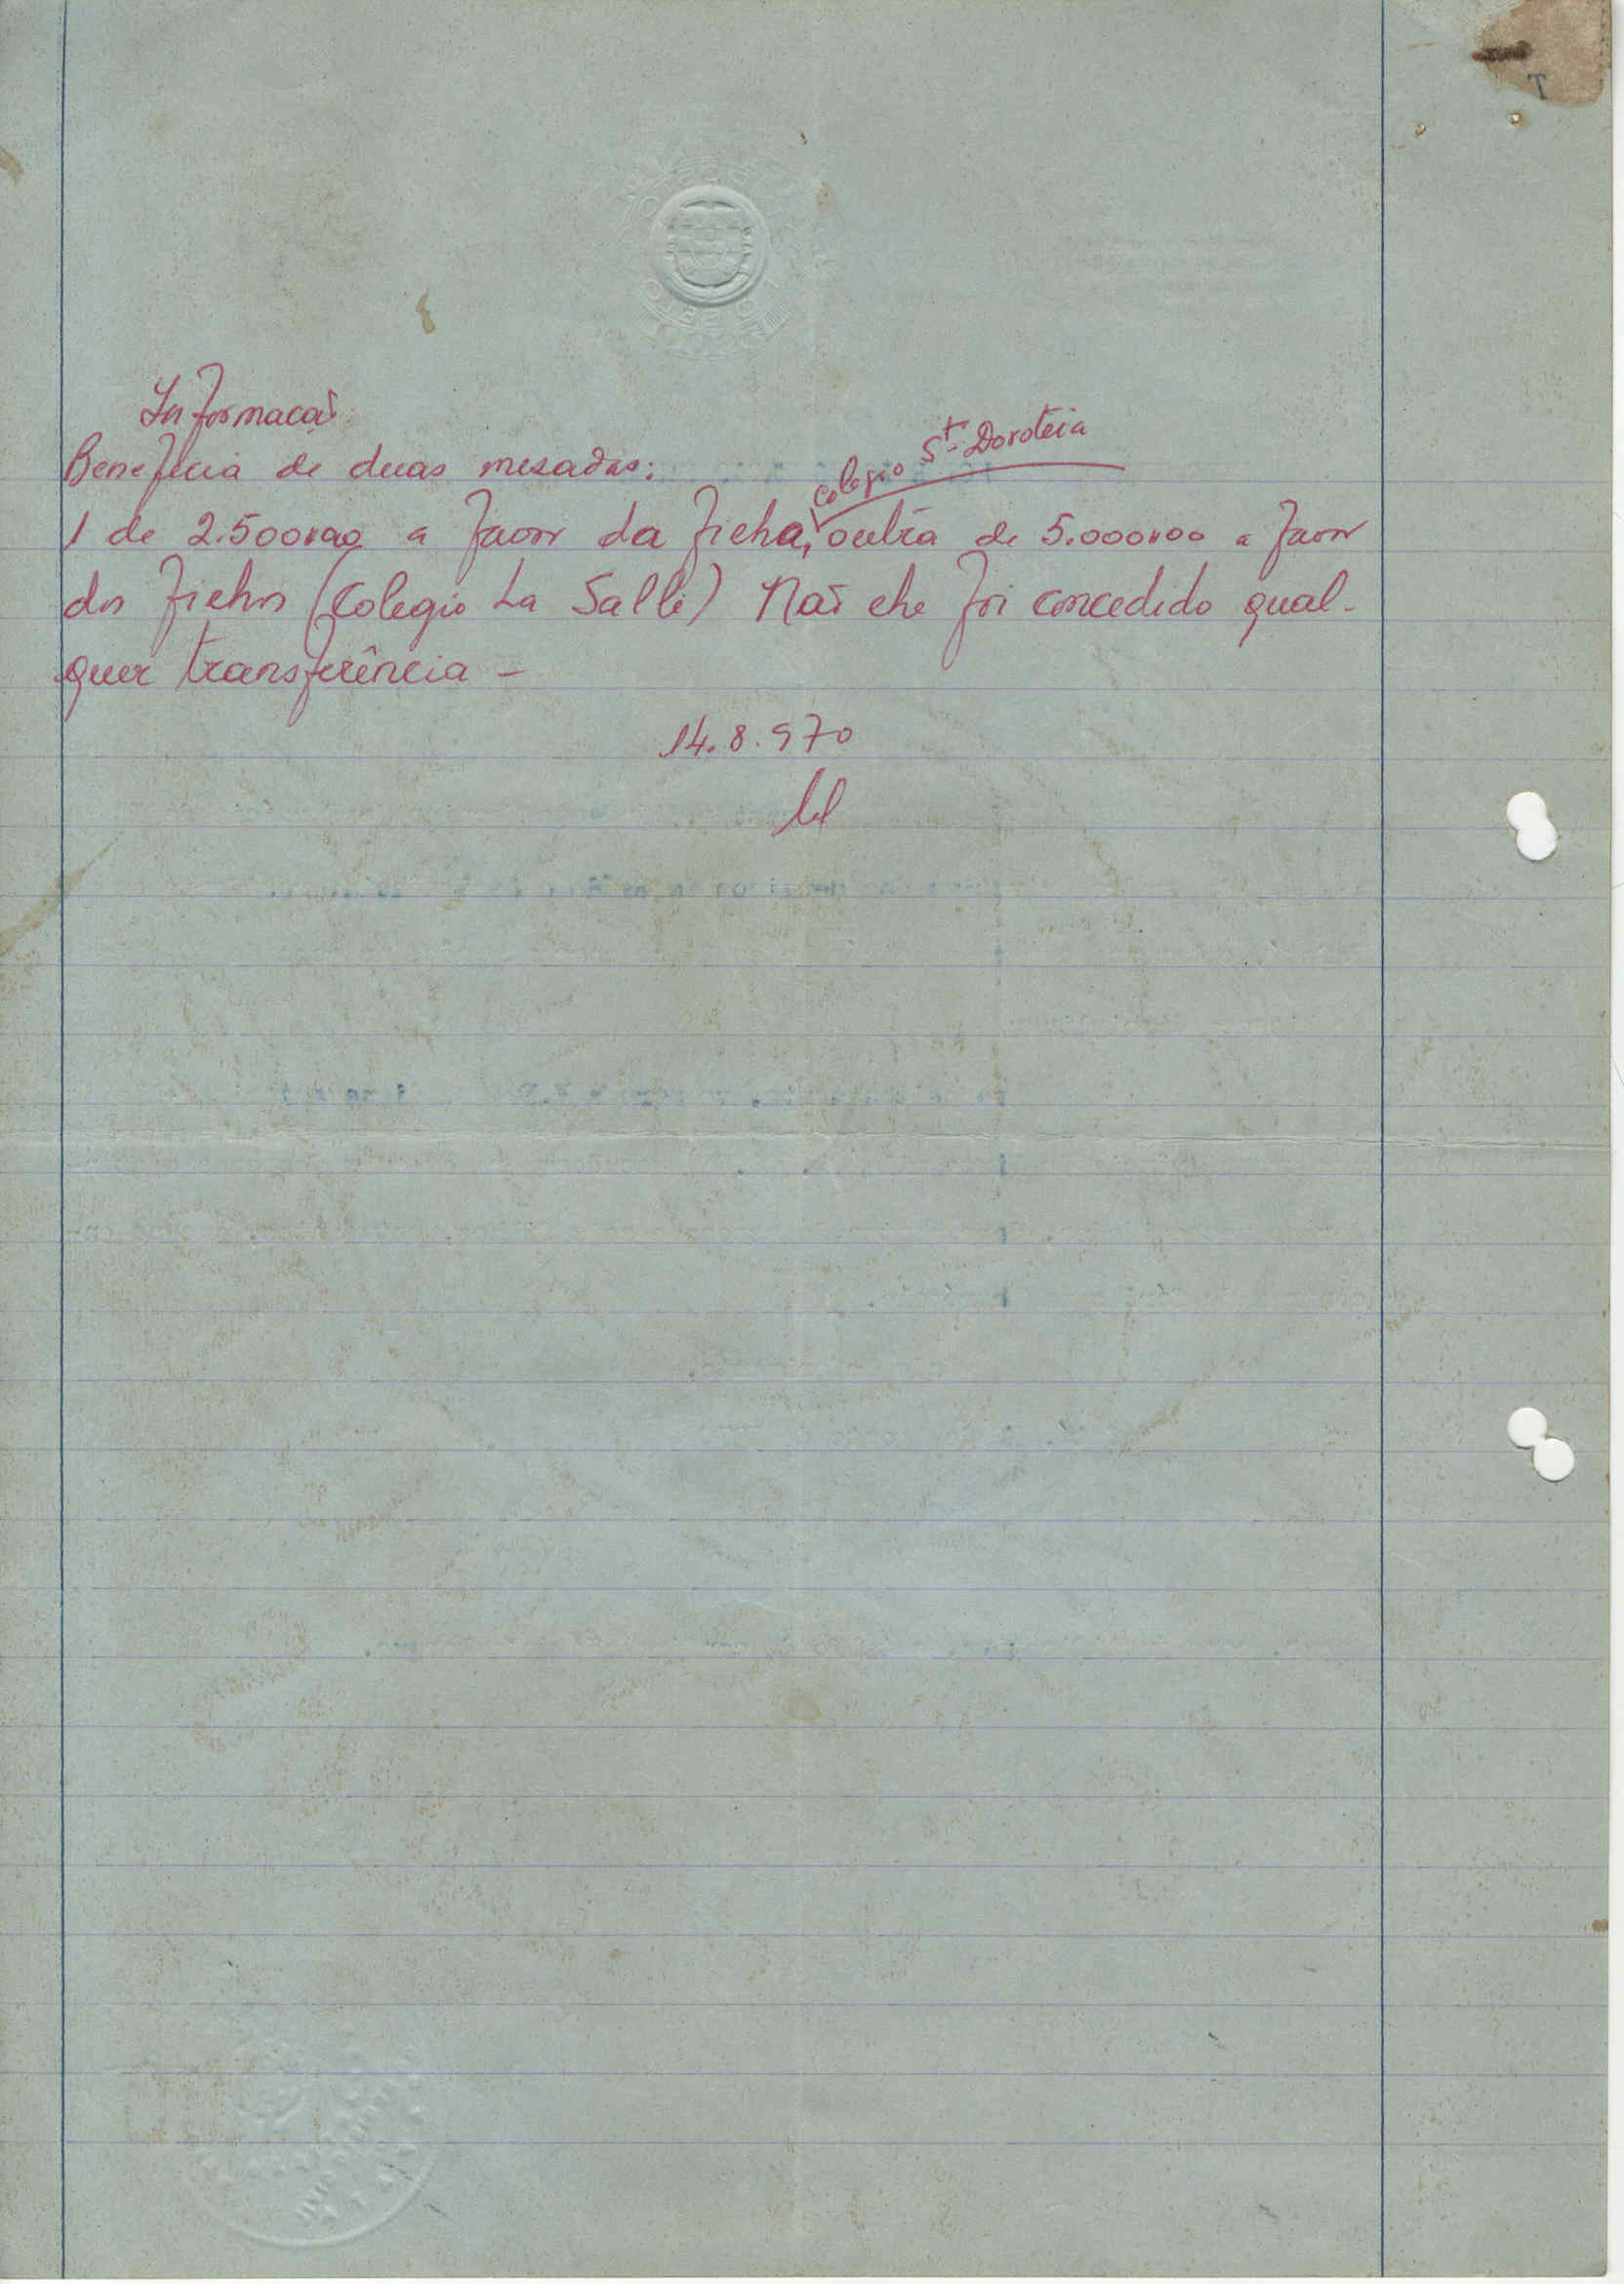 Informação:
Beneficia de duas mesadas:
colegio Stª Doroteia
1 de 2.500$00 a favor da filha, outra de 5.000$00 a favor
dos filhos (Colegio La Salle) Não lhe foi concedido qual-
quer transferência -
14.8.970